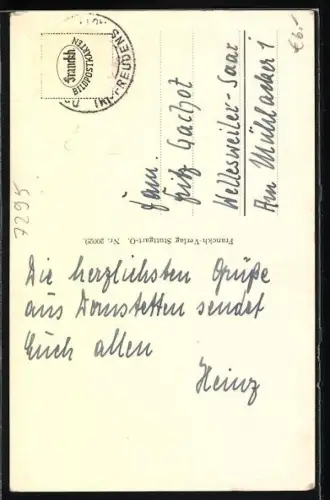 Franckh
BILDPOSTKARTEN
(Kr. FREUDENS
€ 6.-
7295
Fam.
Fritz Gachot
Wellesweiler-Saar
Am Mühlacker 1
Franckh-Verlag Stuttgart-O. Nr. 20029.
Die herzlichsten Grüße
aus Dornstetten sendet
Euch allen
Heinz